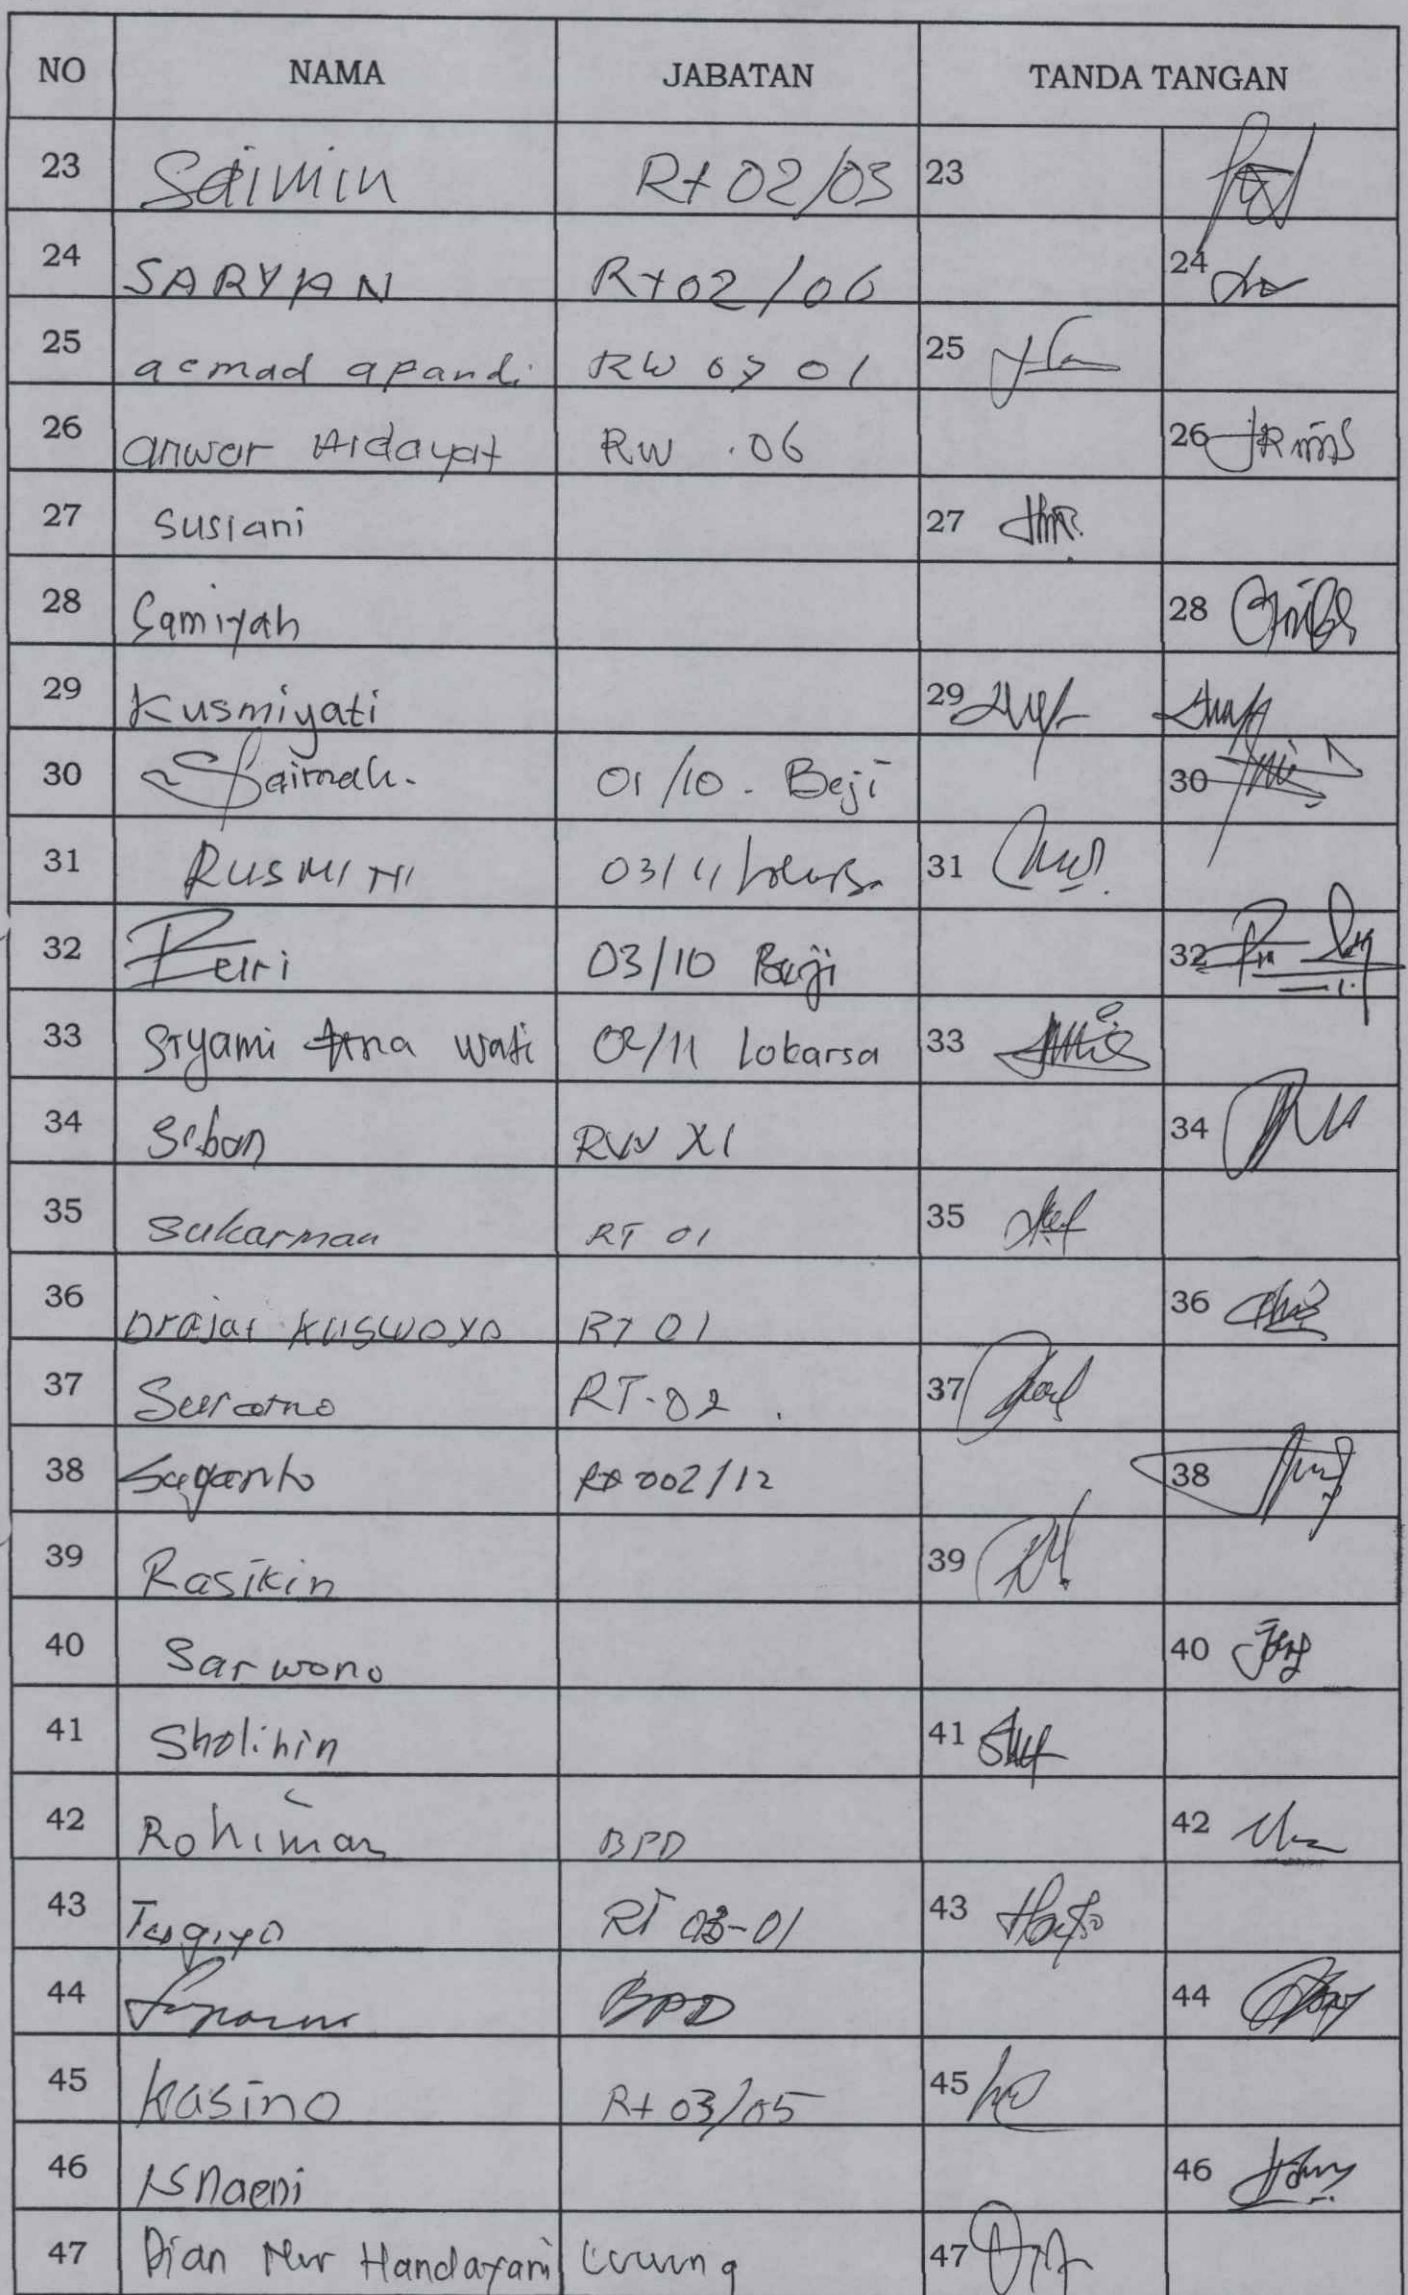 NO NAMA JABATAN TANDA TANGAN
23 Saimin Rt 02/03 23
24 SARYAN Rt 02/06 24
25 acmad apandi RW 07 01 25
26 anwar Hidayat RW .06 26
27 Susiani 27
28 Samiyah 28
29 Kusmiyati 29
30 Saimah. 01/10 - Beji 30
31 RUSMINI 03/11 31
32 03/10 Beji 32
33 wati 02/11 Lokarsa 33
34 RW XI 34
35 Sukarman RT 01 35
36 Drajat Kuswoyo RT 01 36
37 Suratno RT-02 . 37
38 Suganto Rt 002/12 38
39 Rasikin 39
40 Sarwono 40
41 Sholihin 41
42 Rohiman BPD 42
43 Tugiyo RT 03-01 43
44 BPD 44
45 Kasino Rt 03/05 45
46 Isnaeni 46
47 Dian Nur Handayani 47